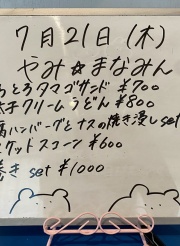 7月21日(木)
やみ☆まなみん
とろタマゴサンド ¥700
太子クリームうどん ¥800
腐ハンバーグとナスの焼き浸しset
ケットスコーン ¥600
巻き set ¥1000